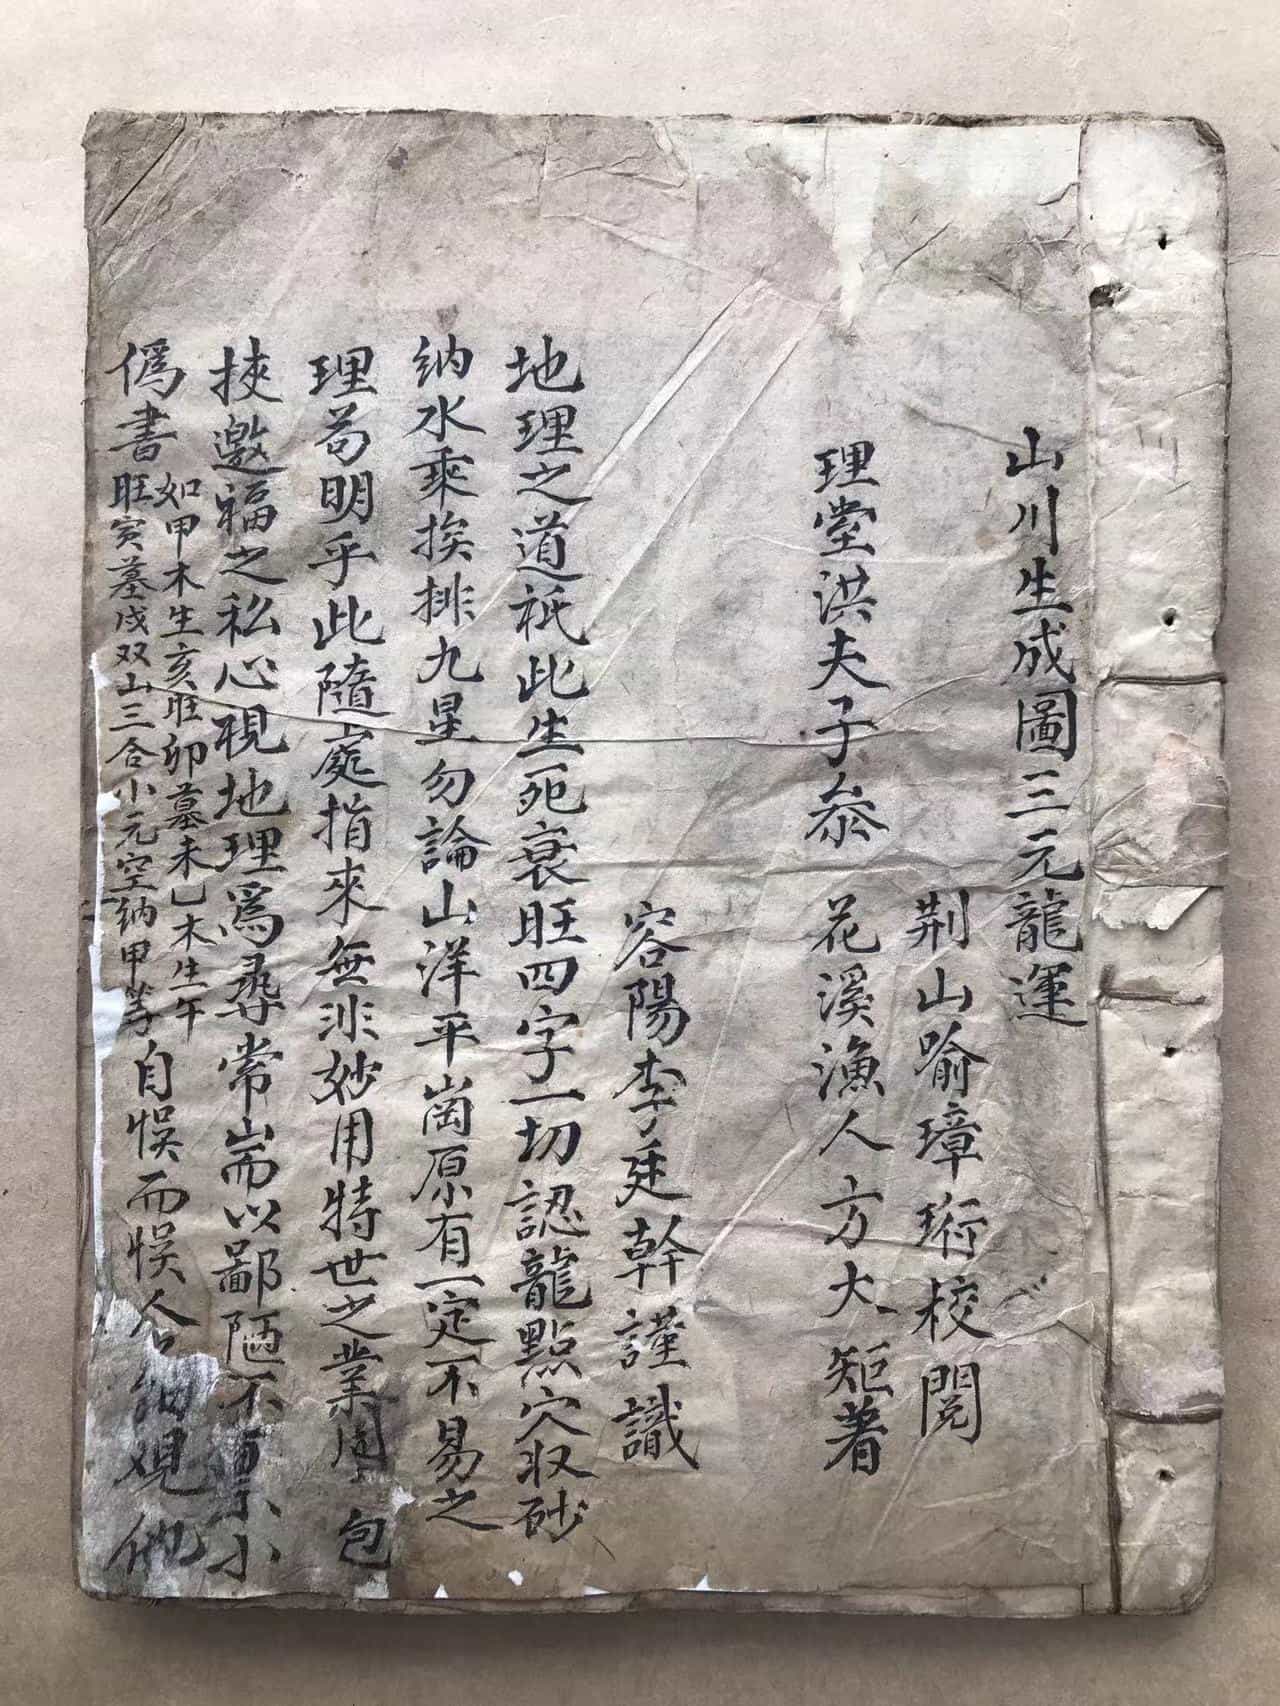 山川生成圖三元龍運
荆山喻璋珩校閱
理堂洪夫子叅 花溪漁人方大矩著
容陽李廷幹謹識
地理之道祇此生死衰旺四字一切認龍點穴収砂
納水乘挨排九星勿論山洋平崗原有一定不易之
理苟明乎此隨處指來無非妙用特世之業 包
挾邀福之私心視地理爲尋常耑以鄙陋不 小
僞書
如甲木生亥旺卯墓未乙木生午
旺寅墓戌双山三合小元空納甲等
自悞而悞人 細觀他